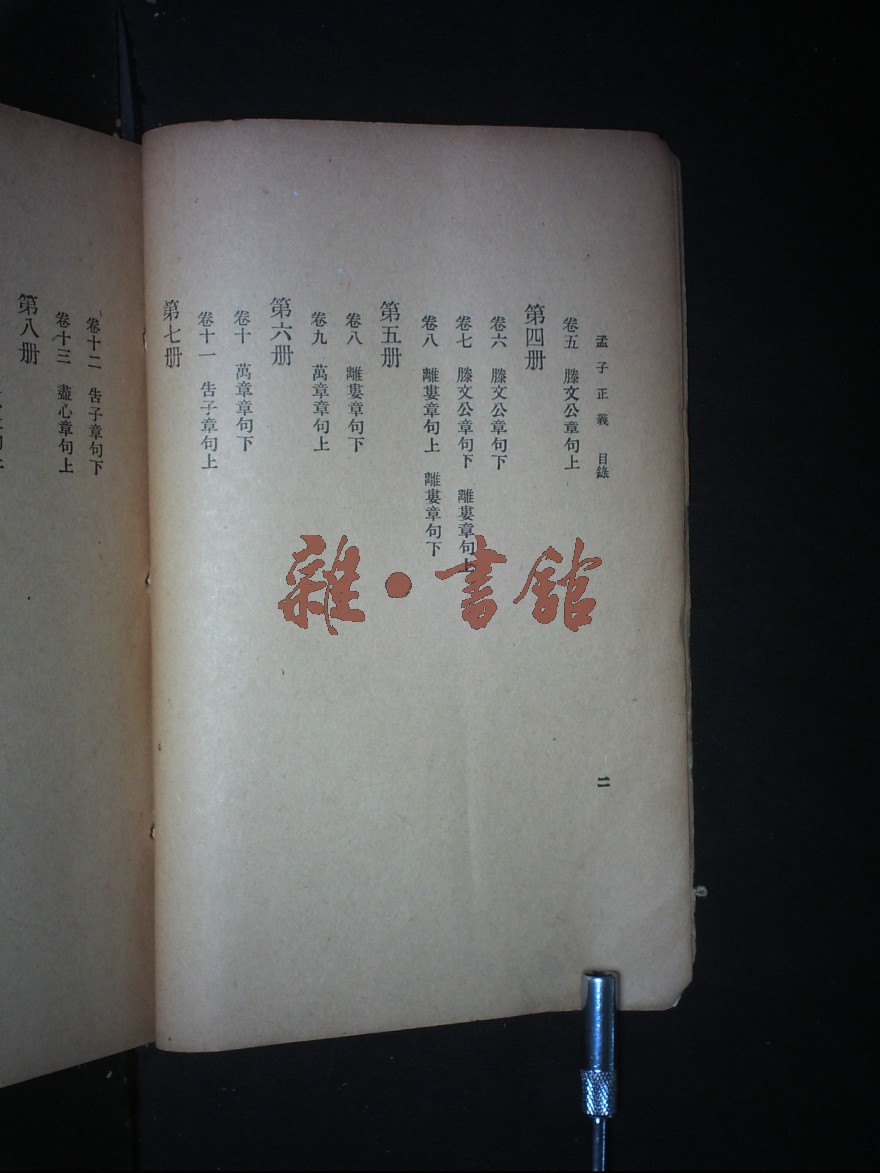 孟子正義 目錄
二
卷五 滕文公章句上
第四册
卷六 滕文公章句下
卷七 滕文公章句下 離婁章句上
卷八 離婁章句上 離婁章句下
第五册
卷八 離婁章句下
卷九 萬章章句上
第六册
卷十 萬章章句下
卷十一 告子章句上
第七册
卷十二 告子章句下
卷十三 盡心章句上
第八册
雜•書館